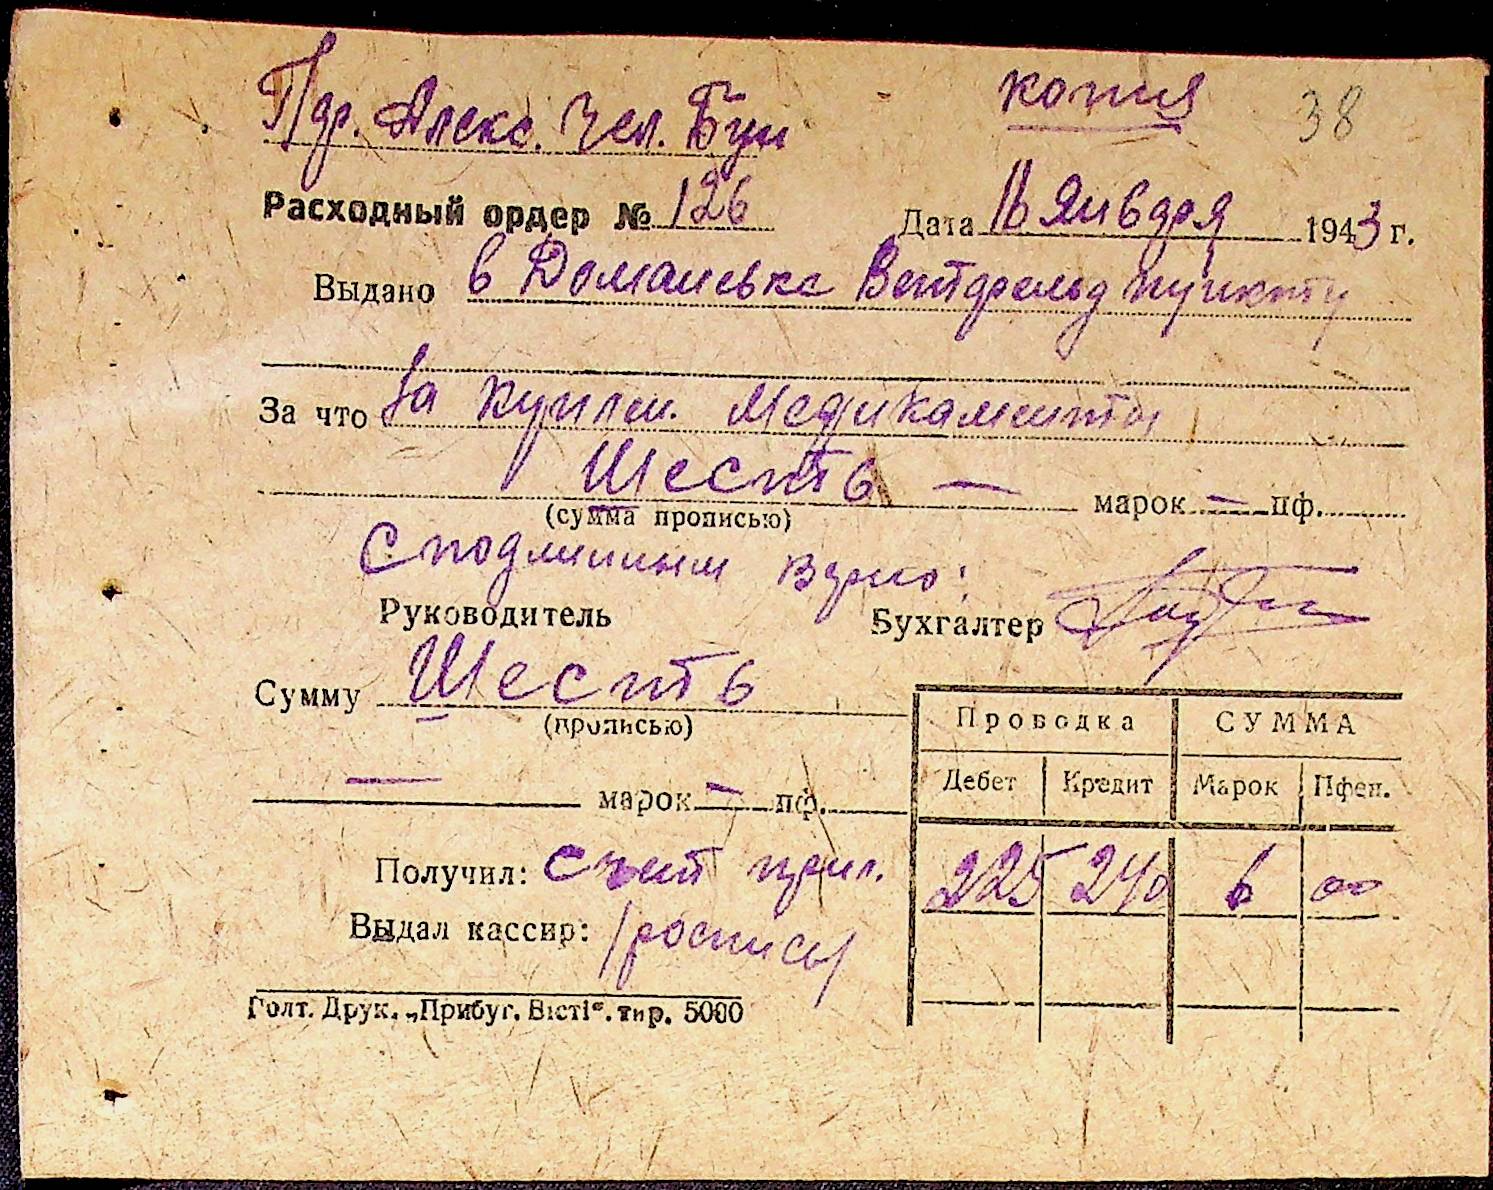 копия 38
Пдр. Алекс. Чел. Буи
Расходный ордер № 126 Дата 16 Января 1943 г.
Выдано в Доманевке пункту
За что За куплен. Медикаменты
Шесть — марок — пф.
(сумма прописью)
С подлинным верно:
Руководитель Бухгалтер
Сумму Шесть
(прописью)
— марок — пф.
Проводка СУММА
Дебет Кредит Марок Пфен.
225 240 6 00
Получил: счет прил.
Выдал кассир: /роспись/
Голт. Друк. „Прибуг. Вісті“. тир. 5000